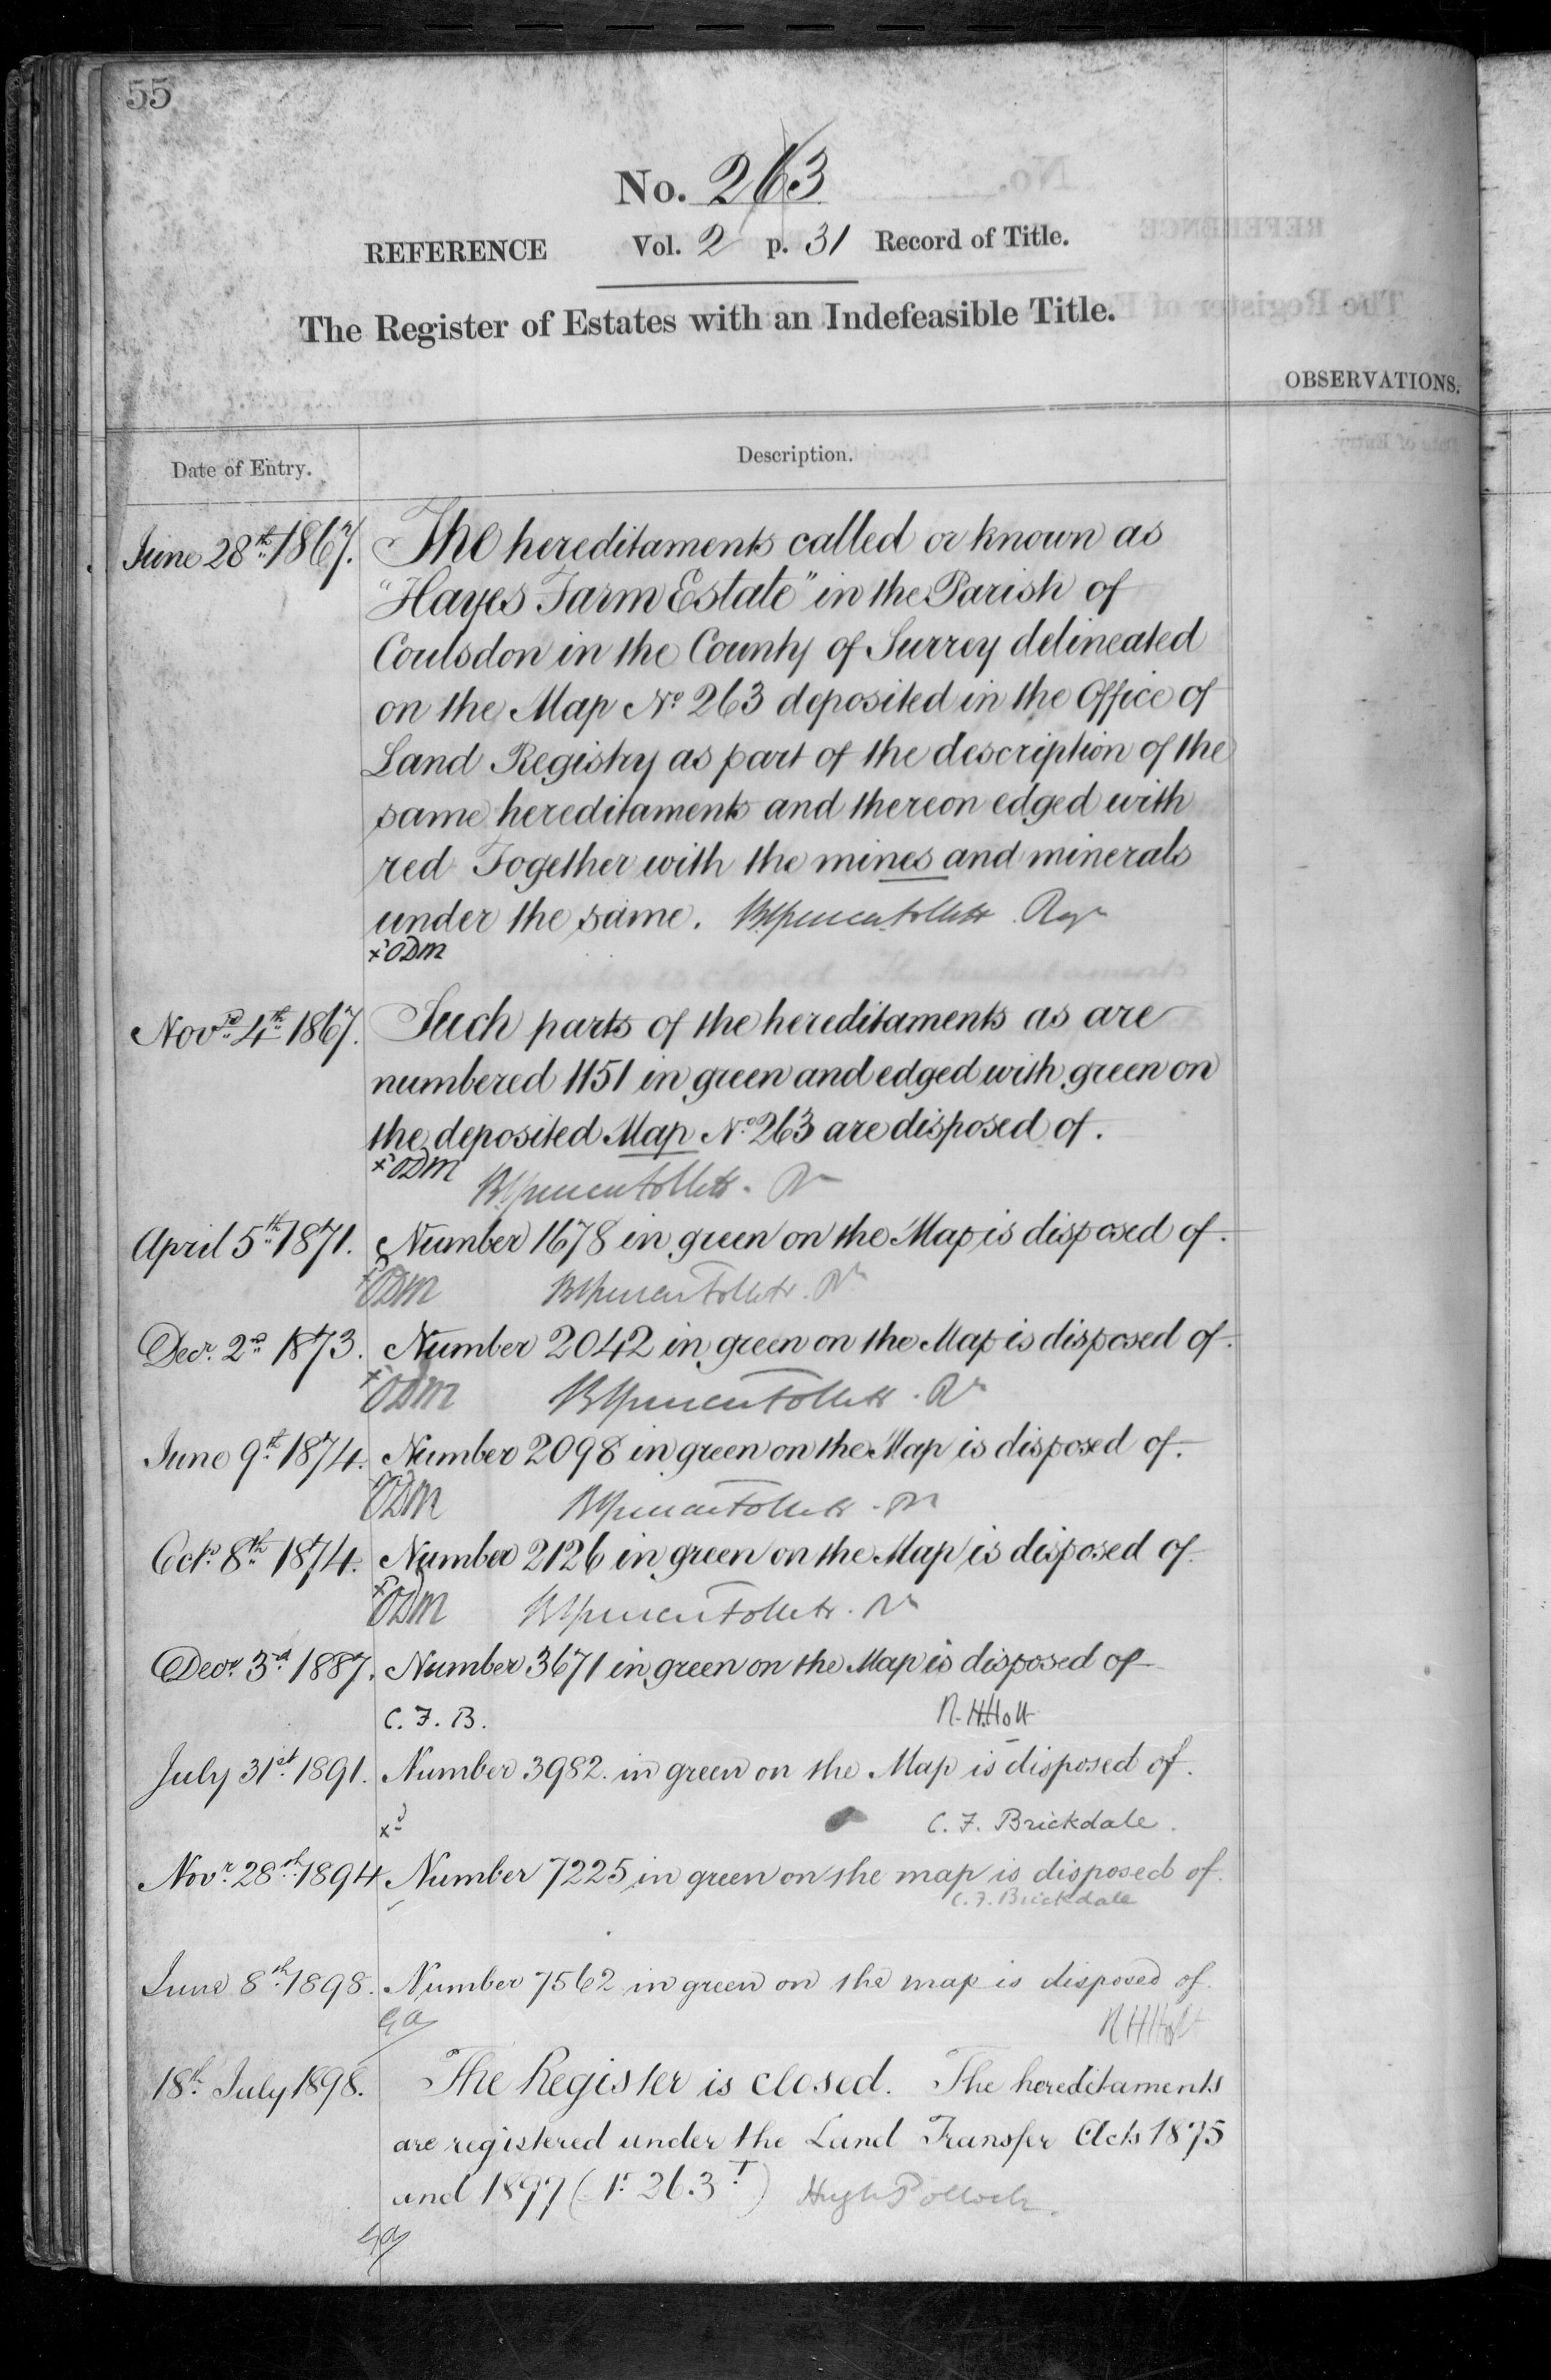 55
No. 263
REFERENCE Vol. 2 p. 31 Record of Title.
The Register of Estates with an Indefeasible Title.
OBSERVATIONS.
Date of Entry. Description.
June 28th 1867. The hereditaments called or known as
"Hayes Farm Estate" in the Parish of
Coulsdon in the County of Surrey delineated
on the Map No 263 deposited in the Office of
Land Registry as part of the description of the
same hereditaments and thereon edged with
red Together with the mines and minerals
under the same. BSpencer Follett Regr
x d ODM
Novr 4th 1867. Such parts of the hereditaments as are
numbered 1151 in green and edged with green on
the deposited Map No 263 are disposed of.
x d ODM
BSpencer Follett. Rr
April 5th 1871. Number 1678 in green on the Map is disposed of.
x d ODM BSpencer Follett. Rr
Decr. 2nd 1873. Number 2042 in green on the Map is disposed of.
x d ODM BSpencer Follett. Rr
June 9th 1874. Number 2098 in green on the Map is disposed of.
x d ODM BSpencer Follett. Rr
Octr 8th 1874. Number 2126 in green on the Map is disposed of.
x d ODM BSpencer Follett. Rr
Decr 3rd 1887. Number 3671 in green on the Map is disposed of
C. F. B. R. H. Holt
July 31st 1891. Number 3982. in green on the Map is disposed of.
x d C. F. Brickdale.
Novr. 28th 1894 Number 7225 in green on the map is disposed of.
C. F. Brickdale
June 8th 1898. Number 7562 in green on the map is disposed of.
R H Holt
18th July 1898. The Register is closed. The hereditaments
are registered under the Land Transfer Acts 1875
and 1897 (Hugh Pollock.